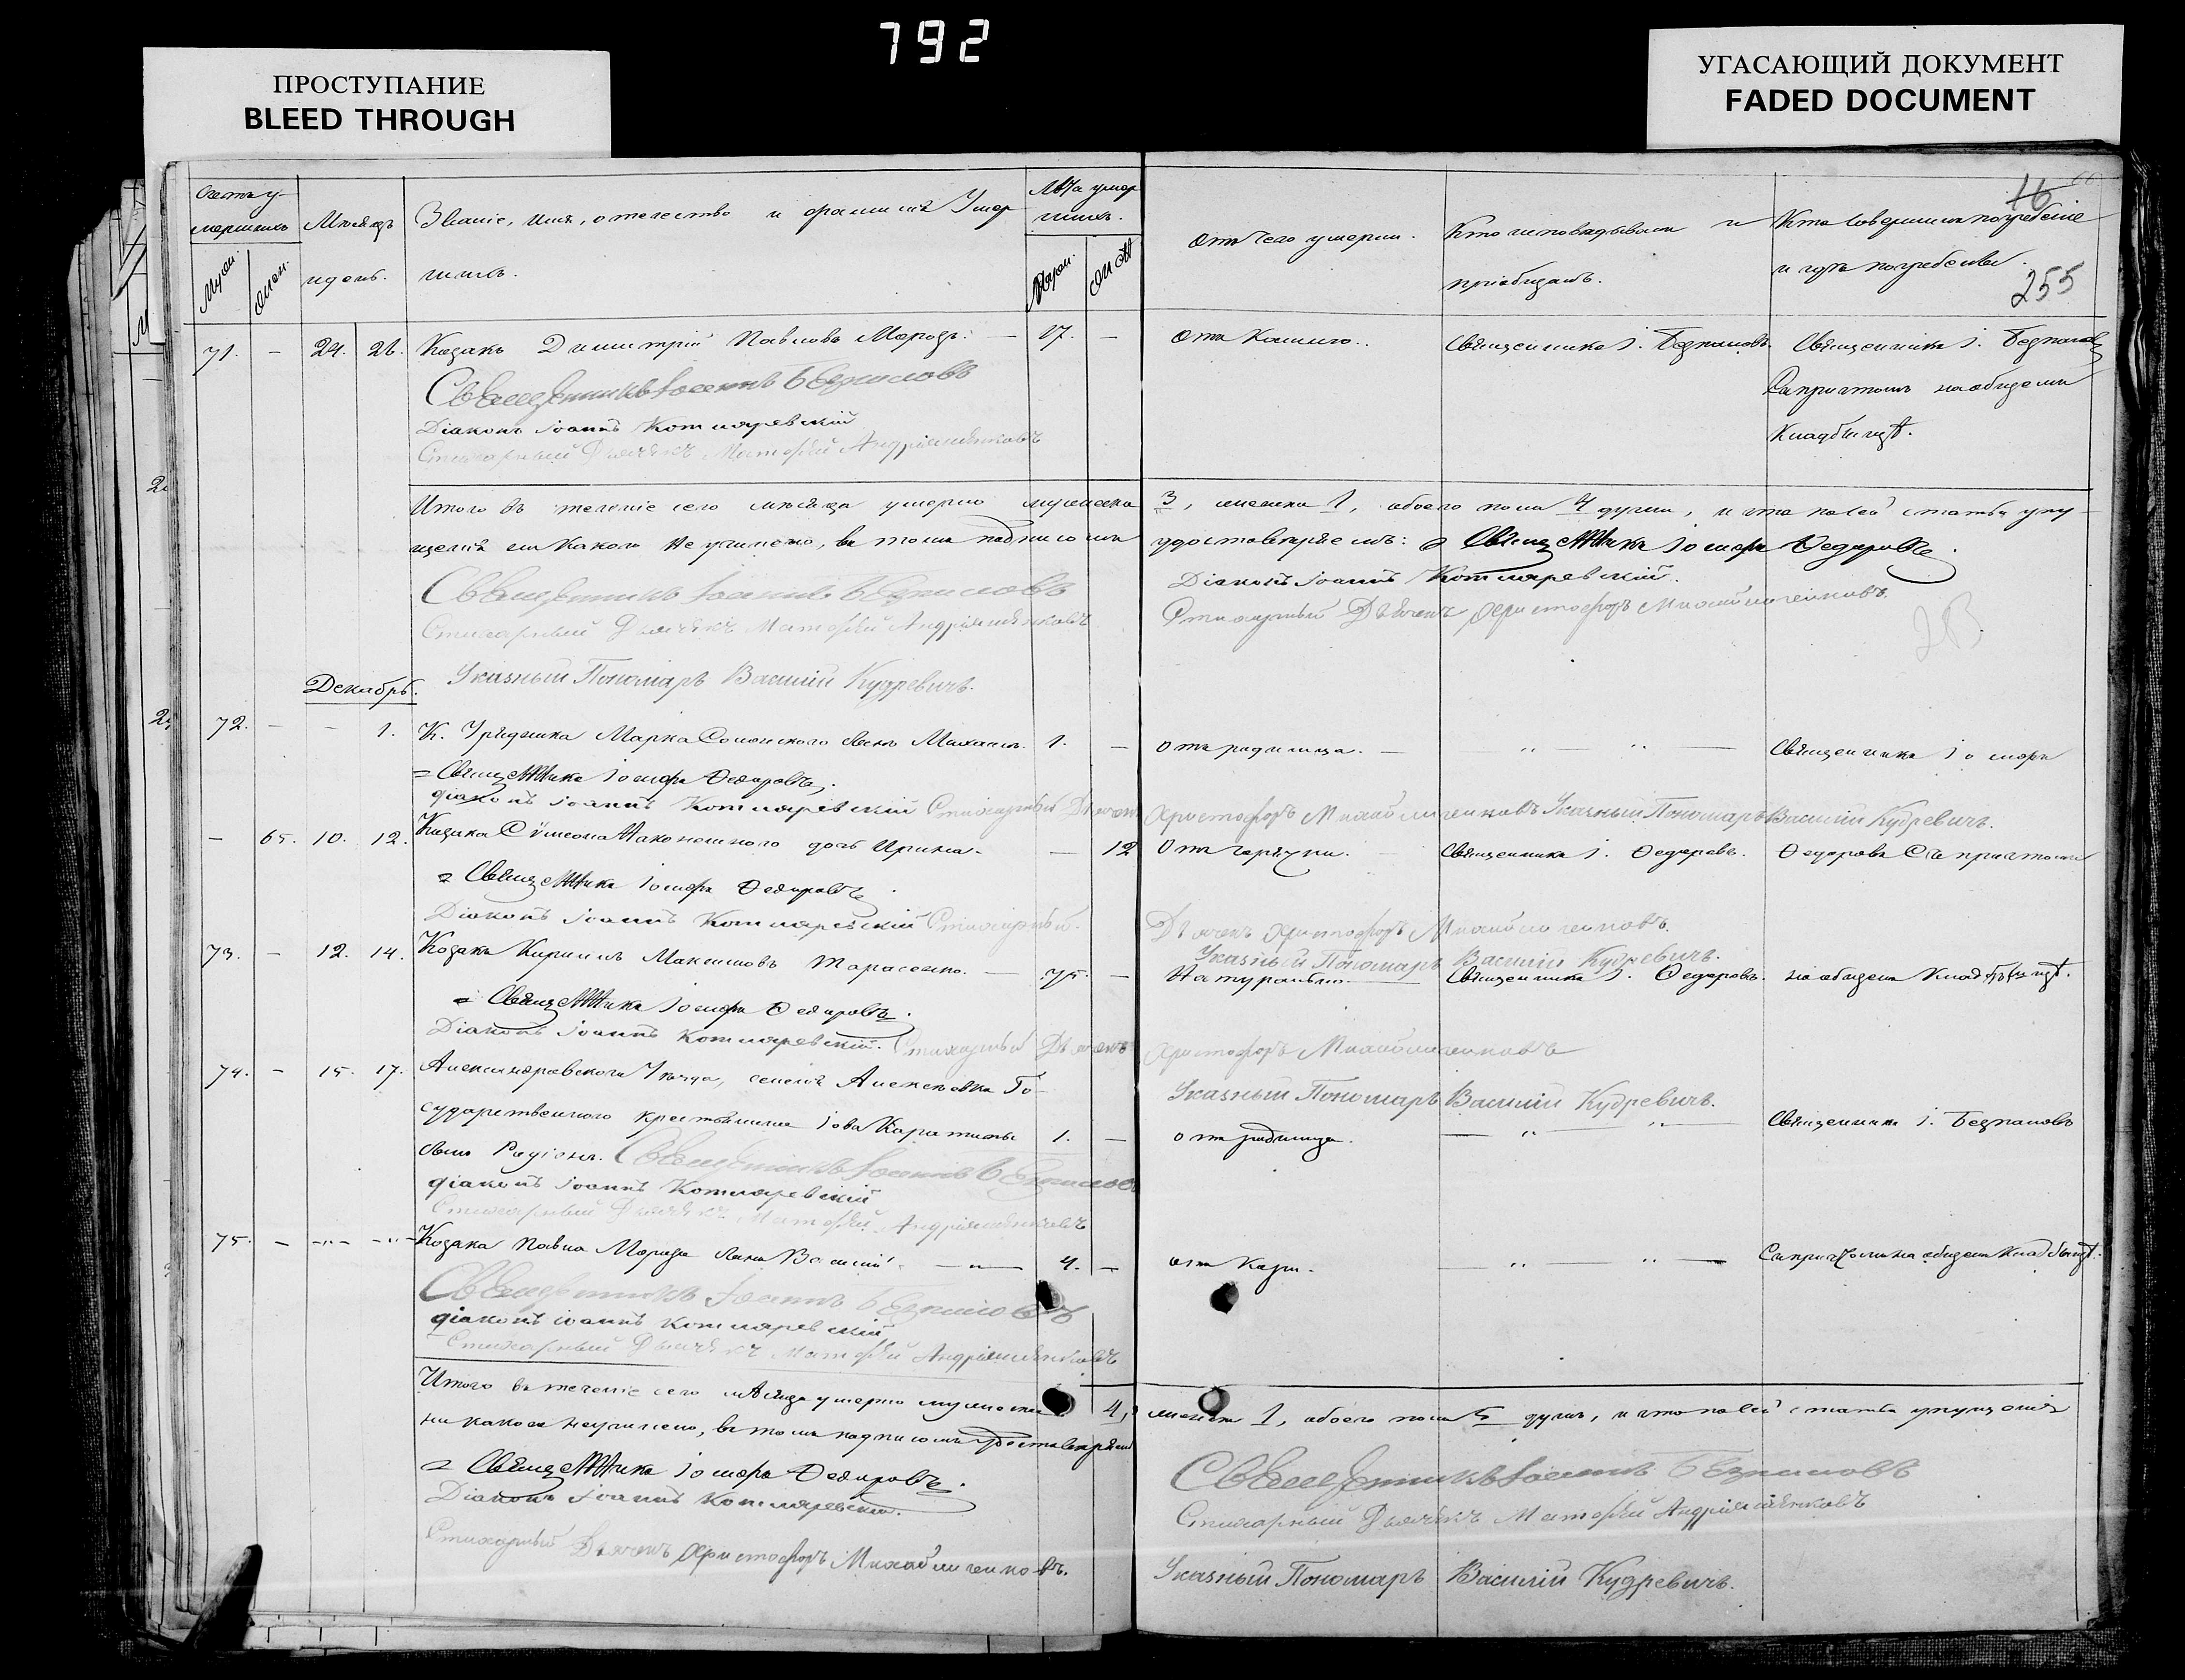 792
ПРОСТУПАНИЕ
BLEED THROUGH
УГАСАЮЩИЙ ДОКУМЕНТ
FADED DOCUMENT
16
255
Счетъ у-
мершихъ
Муж.
Жен.
Мѣсяцъ
и день.
Званіе, имя, отечество и фамилія Умер-
шихъ.
Лѣта умер
шихъ.
Муж.
Отъ чего умерли.
Кто исповѣдывалъ и
пріобщалъ.
Кто совершилъ погребеніе
и гдѣ погребены.
71. — 24. 26. Козакъ Димитрій Павловъ Морозъ. — 17. —
Отъ Кашлю.
Священникъ І. Безпаловъ.
Священникъ І. Безпаловъ
Съ причтомъ на общемъ
Кладбищѣ.
Священникъ Іоаннъ Безпаловъ
Діаконъ Іоаннъ Котляревскій
Стихарный Дьячекъ Матофѣй Андріяшенковъ
Итого въ теченіе сего мѣсяца умерло мужеска 3, женска 1, обоего пола 4 души, и что по сей статьи упу-
щенія ни какого не учинено, въ томъ подписомъ удостовѣряемъ: Священникъ Іосифъ Федоровъ.
Священникъ Іоаннъ Безпаловъ
Діаконъ Іоаннъ Котляревскій.
Стихарный Дьячекъ Матофѣй Андріяшенковъ
Стихарный Дьячекъ Христофоръ Михайличенковъ.
Указный Пономарь Василій Кудревичъ.
Декабрь.
72. — — 1. К. Урядника Марка Солонского сынъ Михаилъ. 1. —
отъ родимца. —
Священникъ Іосифъ
Священникъ Іосифъ Федоровъ.
діаконъ Іоаннъ Котляревскій Стихарный Дьячекъ Христофоръ Михайличенковъ Указный Пономарь Василій Кудревичъ.
— 65. 10. 12. Козака Сѵмеона Наконешного дочь Ирина. — 12
Отъ горячки.
Священникъ І. Федоровъ.
Федоровъ Съ причтомъ
Священникъ Іосифъ Федоровъ.
Діаконъ Іоаннъ Котляревскій Стихарный
Дьячекъ Христофоръ Михайличенковъ.
Указный Пономарь Василій Кудревичъ.
73. — 12. 14. Козакъ Кириллъ Максимовъ Тарасенко. — 75. —
Натурально
Священникъ І. Федоровъ.
на общемъ Кладбищѣ.
Священникъ Іосифъ Федоровъ.
Діаконъ Іоаннъ Котляревскій. Стихарный Дьячекъ Христофоръ Михайличенковъ
Указный Пономарь Василій Кудревичъ.
74. — 15. 17. Александровского Уѣзда, селенія Алексѣевки Го-
сударственного крестьянина Іова Каратины 1. —
сынъ Родіонъ.
отъ родимца.
Священникъ І. Безпаловъ
Священникъ Іоаннъ Безпаловъ
діаконъ Іоаннъ Котляревскій
Стихарный Дьячекъ Матофѣй Андріяшенковъ
75. — Козака Павла Мороза сынъ Василій. 4. —
отъ Кори.
Съ причтомъ на общемъ Кладбищѣ.
Священникъ Іоаннъ Безпаловъ
діаконъ Іоаннъ Котляревскій
Стихарный Дьячекъ Матофѣй Андріяшенковъ
Итого въ теченіе сего мѣсяца умерло мужеска 4, женска 1, обоего пола 5 душъ, и что по сей статьи упущенія
ни какого не учинено, въ томъ подписомъ удостовѣряемъ
Священникъ Іосифъ Федоровъ.
Діаконъ Іоаннъ Котляревскій.
Стихарный Дьячекъ Христофоръ Михайличенковъ.
Священникъ Іоаннъ Безпаловъ
Стихарный Дьячекъ Матофѣй Андріяшенковъ
Указный Пономарь Василій Кудревичъ.